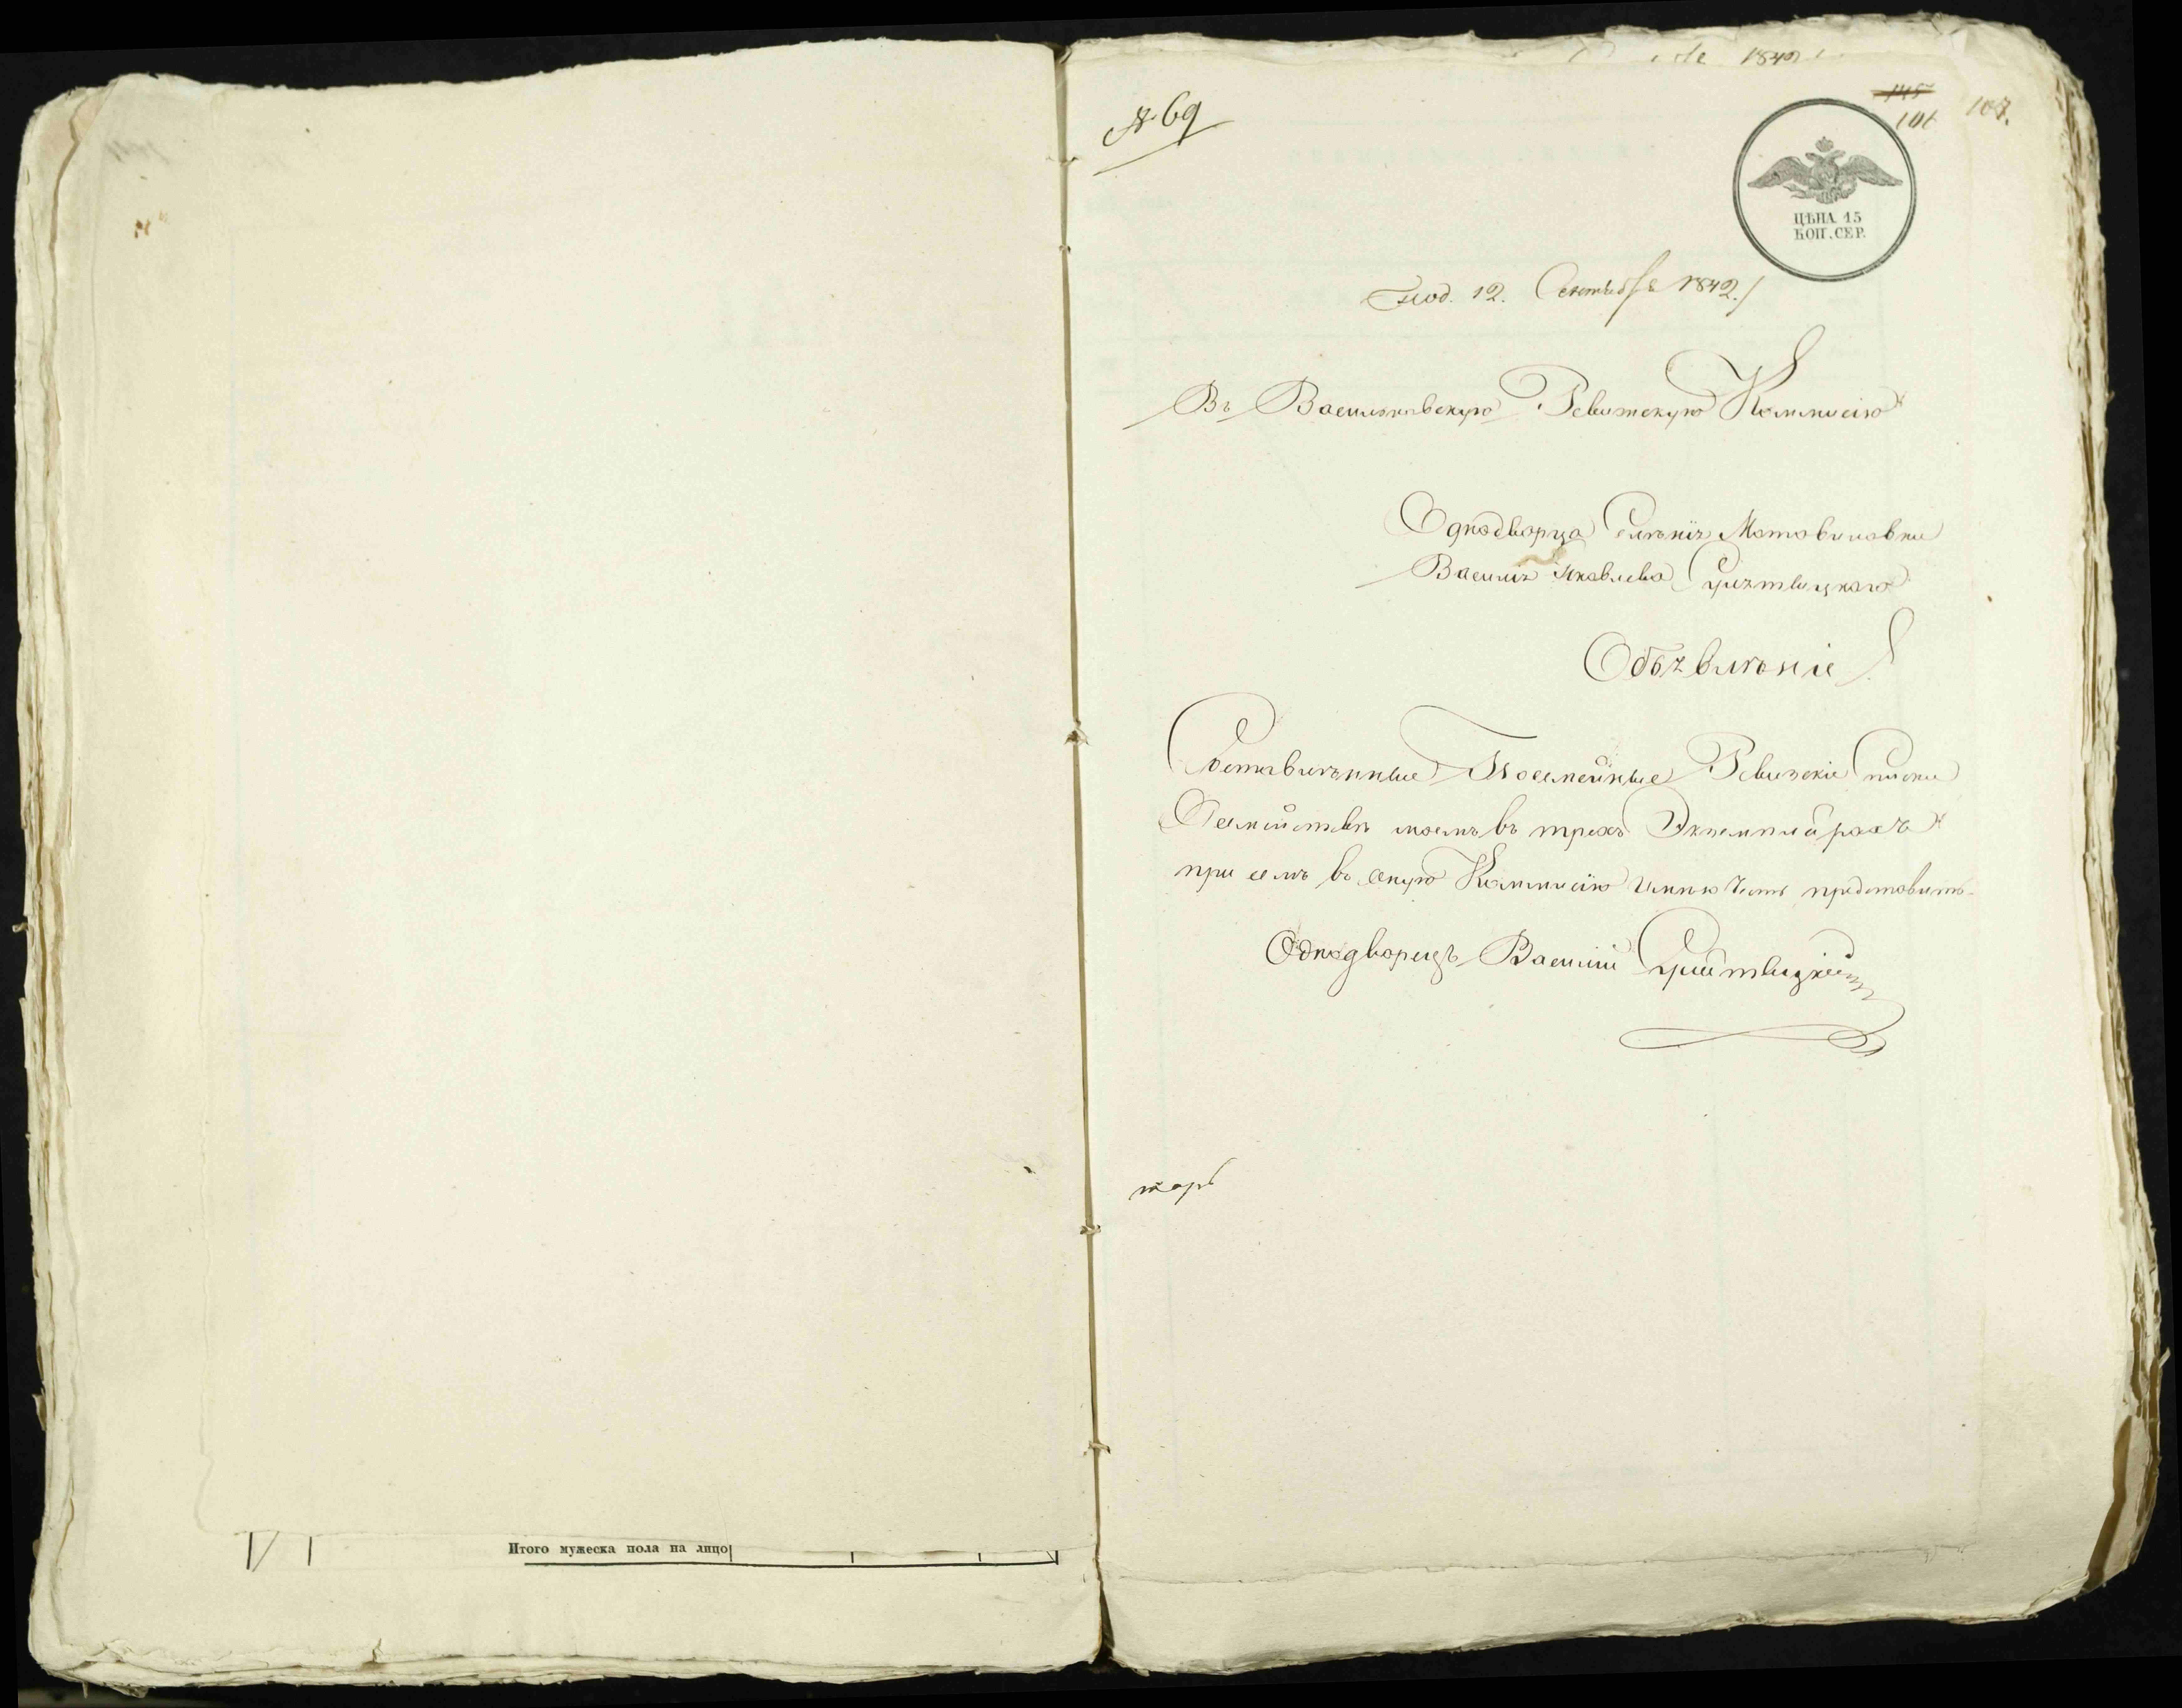 1842
№ 69
145
101
107.
ЦѢНА 15
КОП. СЕР.
Под. 12. Сентября 1842.
Въ Васильковскую Ревизскую Коммисію
Однодворца Селенія Мотовиловки
Василія Яковлева
Объявленіе
Составленные Посемейные Ревизскіе списки
О семействѣ моемъ въ трехъ Экземплярахъ
при семъ въ оную Коммисію имѣю честь представить
Однодворецъ Василій
Итого мужеска пола на лицо